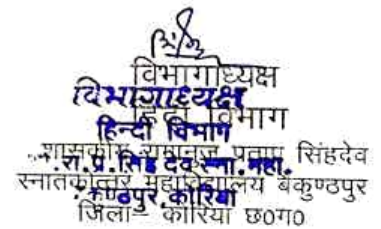 विभागाध्यक्ष
विभागाध्यक्ष
हिंदी विभाग
हिन्दी विभाग
शासकीय रामानुज प्रताप सिंहदेव
रा.प्र.सिंह देव स्ना. महा.
स्नातकोत्तर महाविद्यालय बैकुण्ठपुर
कुण्ठपुर, कोरिया
जिला– कोरिया छ0ग0